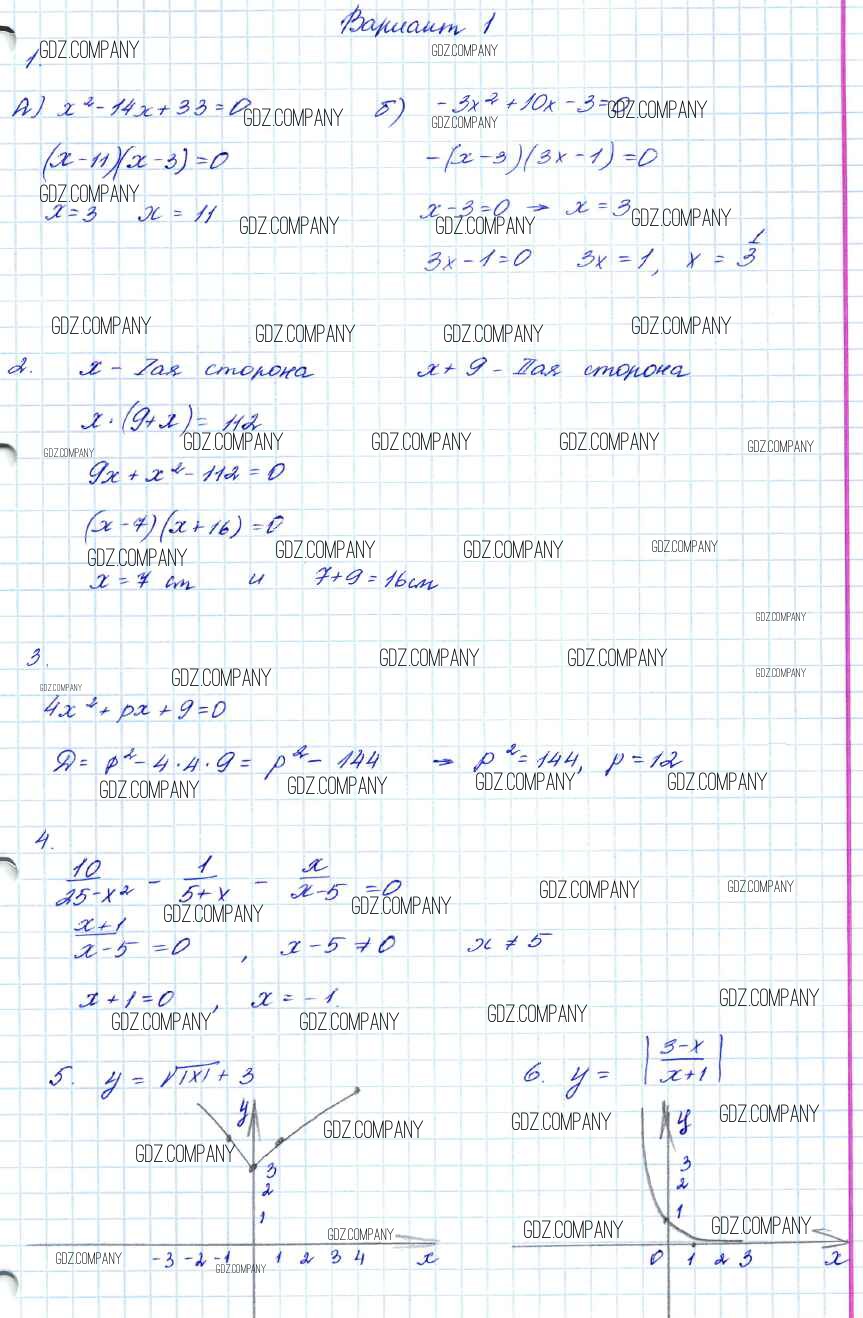 Вариант 1
1.
А) x² - 14x + 33 = 0   б) -3x² + 10x - 3 = 0
(x-11)(x-3) = 0   -(x-3)(3x-1) = 0
x = 3   x = 11   x - 3 = 0 → x = 3
3x - 1 = 0   3x = 1, x = 1/3
2. x - Iая сторона   x + 9 - IIая сторона
x · (9+x) = 112
9x + x² - 112 = 0
(x-7)(x+16) = 0
x = 7 см и 7+9 = 16 см
3.
4x² + px + 9 = 0
Д = p² - 4·4·9 = p² - 144 → p² = 144, p = 12
4.
10/(25-x²) - 1/(5+x) - x/(x-5) = 0
(x+1)/(x-5) = 0, x - 5 ≠ 0   x ≠ 5
x + 1 = 0, x = -1.
5. y = √|x| + 3   6. y = |(3-x)/(x+1)|
y   y
3   3
2   2
1   1
-3 -2 -1 1 2 3 4 x   0 1 2 3 x
GDZ.COMPANY